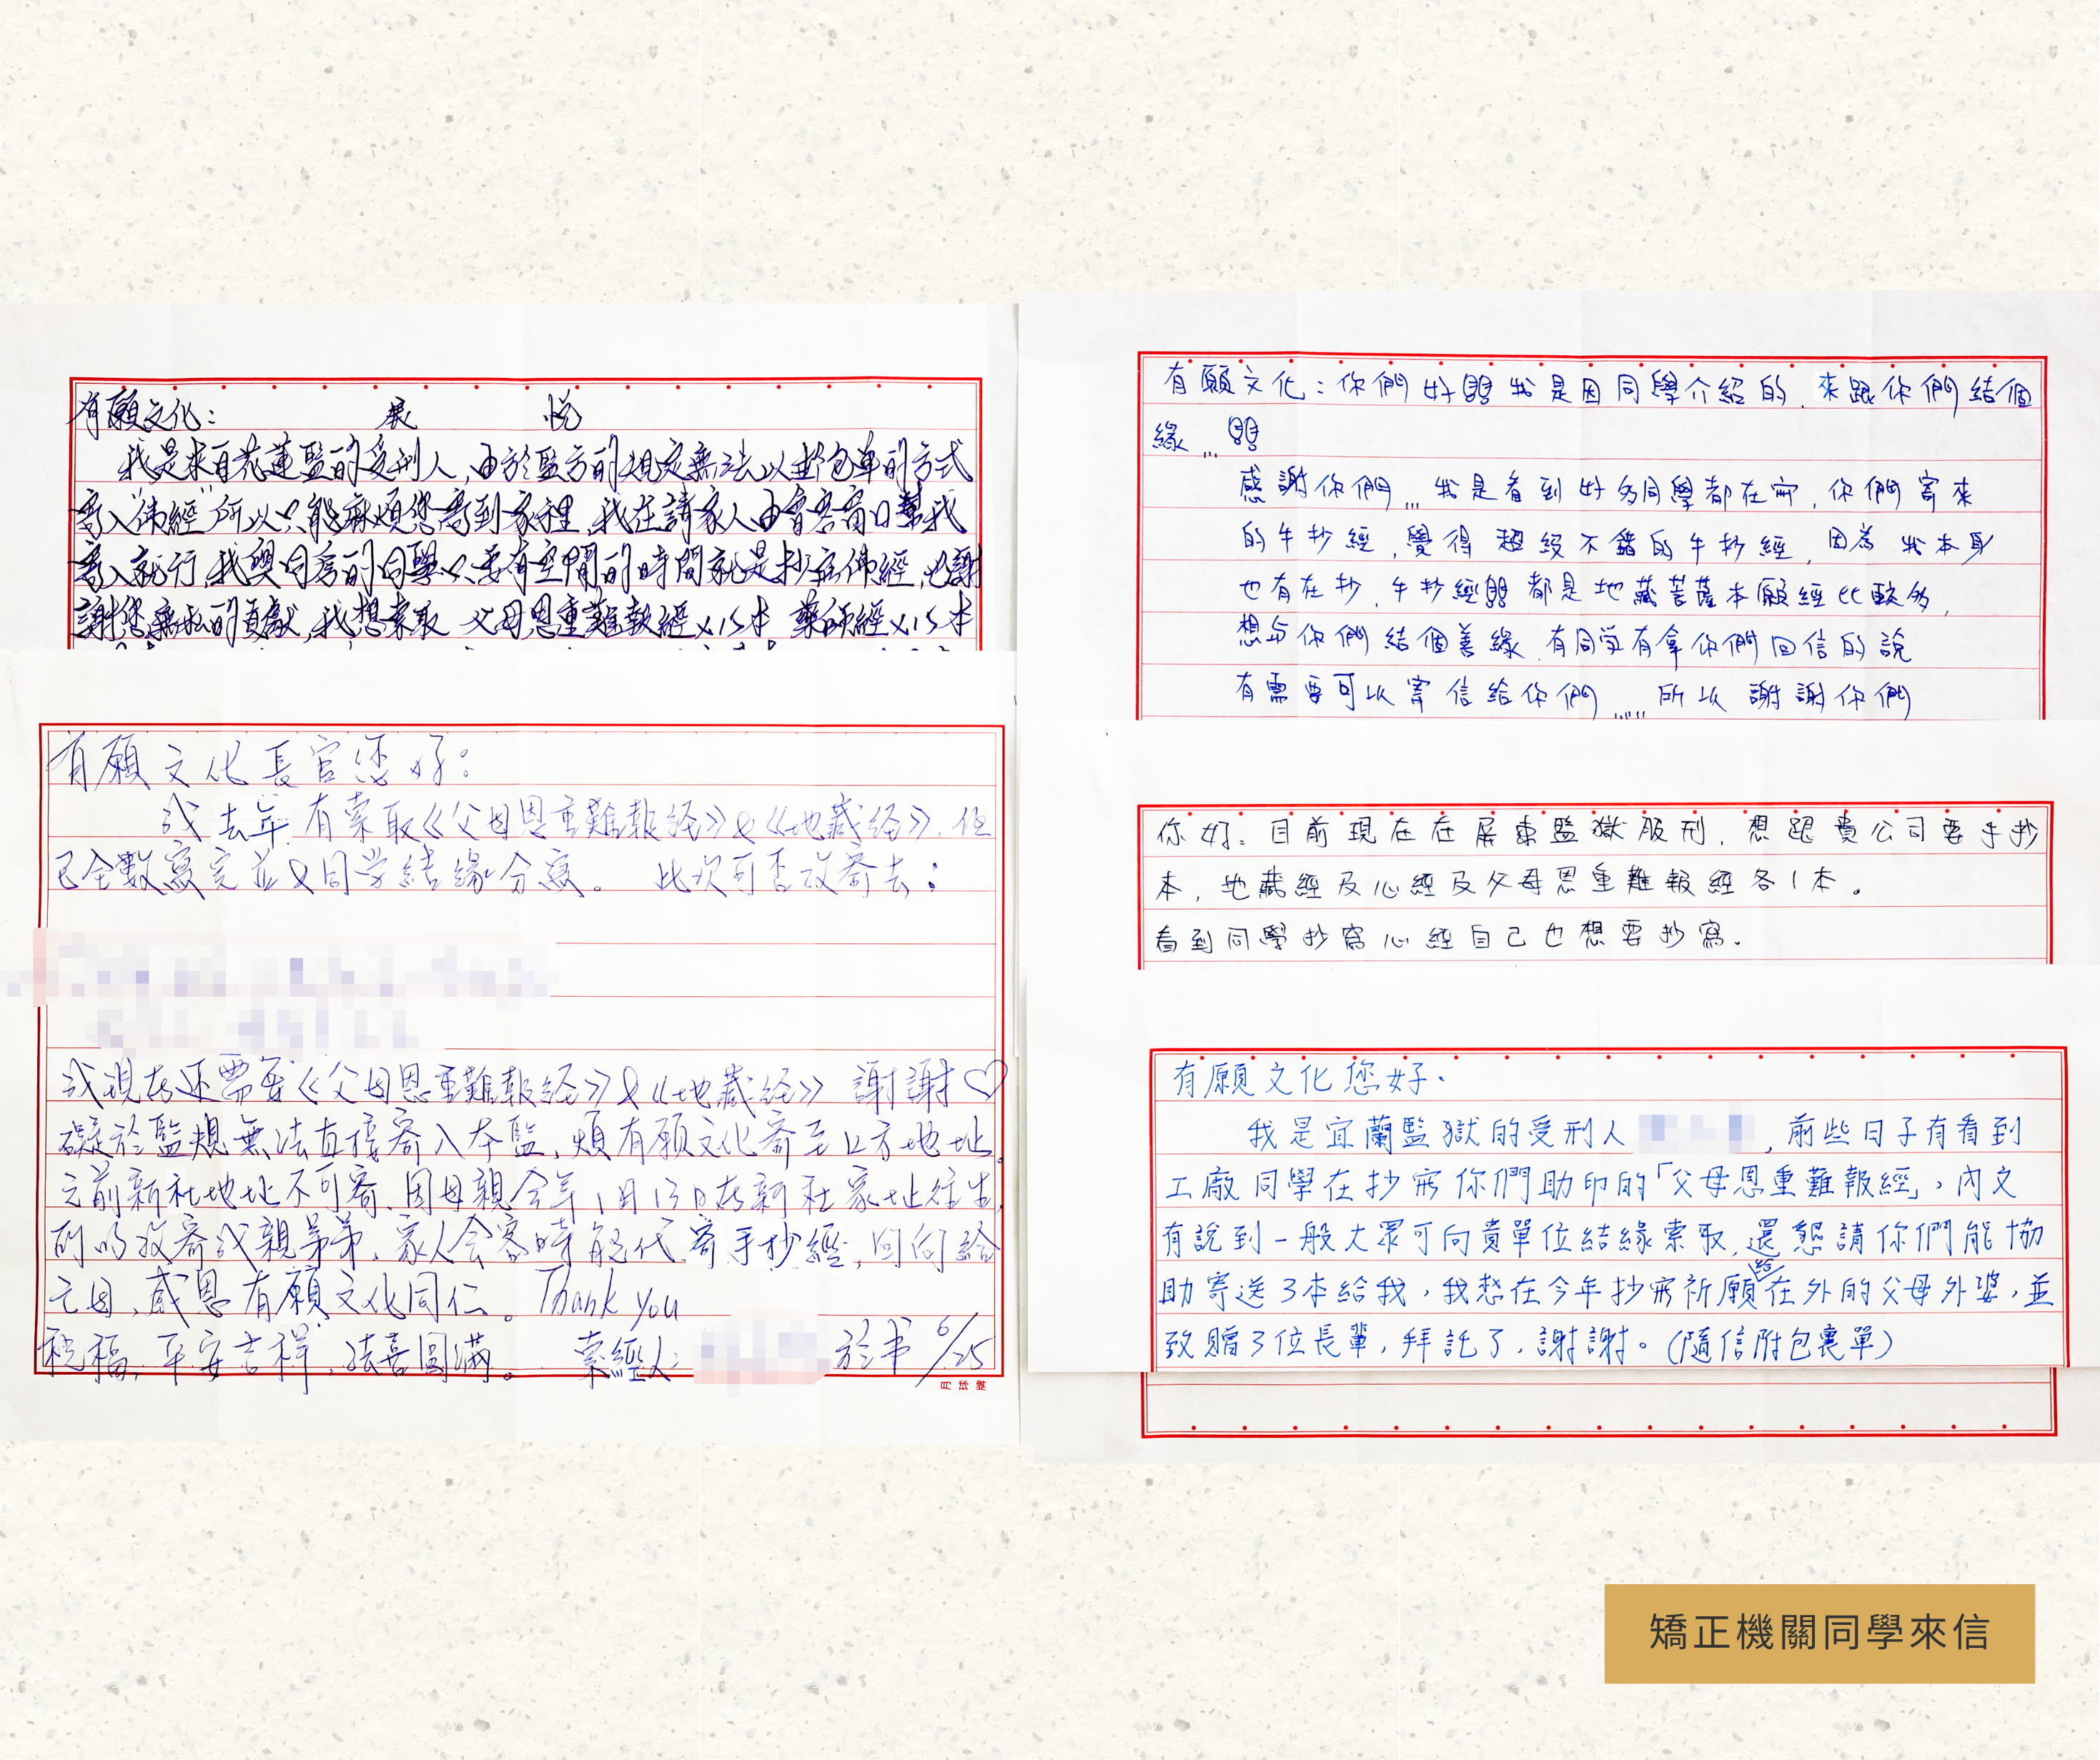 有願文化： 展 悅
我是來自花蓮監的受刑人，由於監方的規定無法以郵包單的方式
寄入“佛經”所以只能麻煩您寄到家裡，我在請家人由會客窗口幫我
寄入就行，我與同房的同學只要有空閒的時間就是抄寫佛經，也謝
謝您無私的貢獻，我想索取 父母恩重難報經×15本 藥師經×15本
有願文化長官您好：
我去年有索取《父母恩重難報経》&《地藏経》，但
已全數寫完並&同学結緣分寫。 此次可否改寄去：
我現在还需要《父母恩重難報経》&《地藏経》 謝謝♡
礙於監規無法直接寄入本監，煩有願文化寄至上方地址。
之前新社地址不可寄，因母親今年1月13日在新社家址往生，
所以改寄我親弟弟，家人会客時能代寄手抄經，回向給
亡母，感恩有願文化同仁。Thank you
祝福，平安吉祥，法喜圓滿。 索經人： 於书 6/25
有願文化：你們好 我是因同學介紹的，來跟你們結個
緣…
感謝你們…我是看到好多同學都在寫，你們寄來
的手抄經，覺得 超級不錯的手抄經，因為 我本身
也有在抄，手抄經 都是地藏菩薩本願經比較多，
想与你們結個善緣，有同学有拿你們回信的說
有需要可以寄信給你們……所以 謝謝你們
你好：目前現在在屏東監獄服刑，想跟貴公司要手抄
本，地藏經及心經及父母恩重難報經各1本。
看到同學抄寫心經自己也想要抄寫。
有願文化您好．
我是宜蘭監獄的受刑人 ，前些日子有看到
工廠同學在抄寫你們助印的「父母恩重難報經」，內文
有說到一般大眾可向貴單位結緣索取，還懇請你們能協
助寄送3本給我，我想在今年抄寫祈願給在外的父母外婆，並
致贈3位長輩，拜託了，謝謝。（隨信附包裹單）
矯正機關同學來信